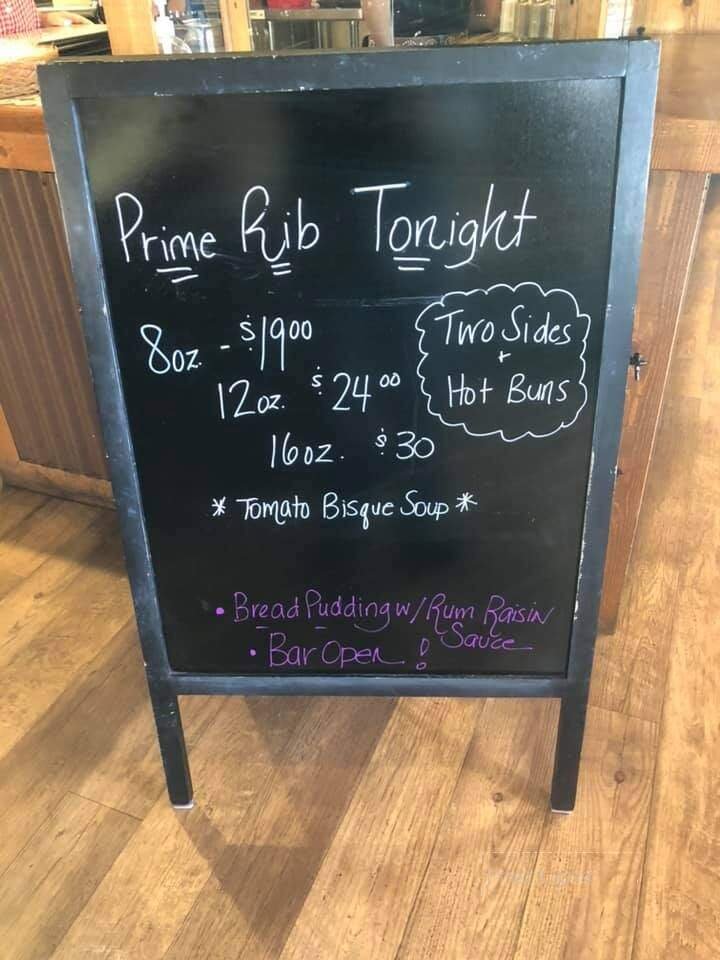 Prime Rib Tonight
8oz. - $19.00
12oz. $24.00
16oz. $30
Two Sides
+
Hot Buns
* Tomato Bisque Soup *
• Bread Pudding w/ Rum Raisin
Sauce
• Bar Open !